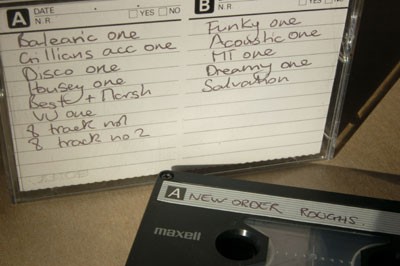 A DATE
N.R. YES NO
Balearic one
Gillians acc one
Disco one
Housey one
Best + Marsh
VU one
8 track no1
8 track no 2
B DATE
N.R. YES NO
Funky one
Acoustic one
MT one
Dreamy one
Salvation
A NEW ORDER ROUGHS..
maxell